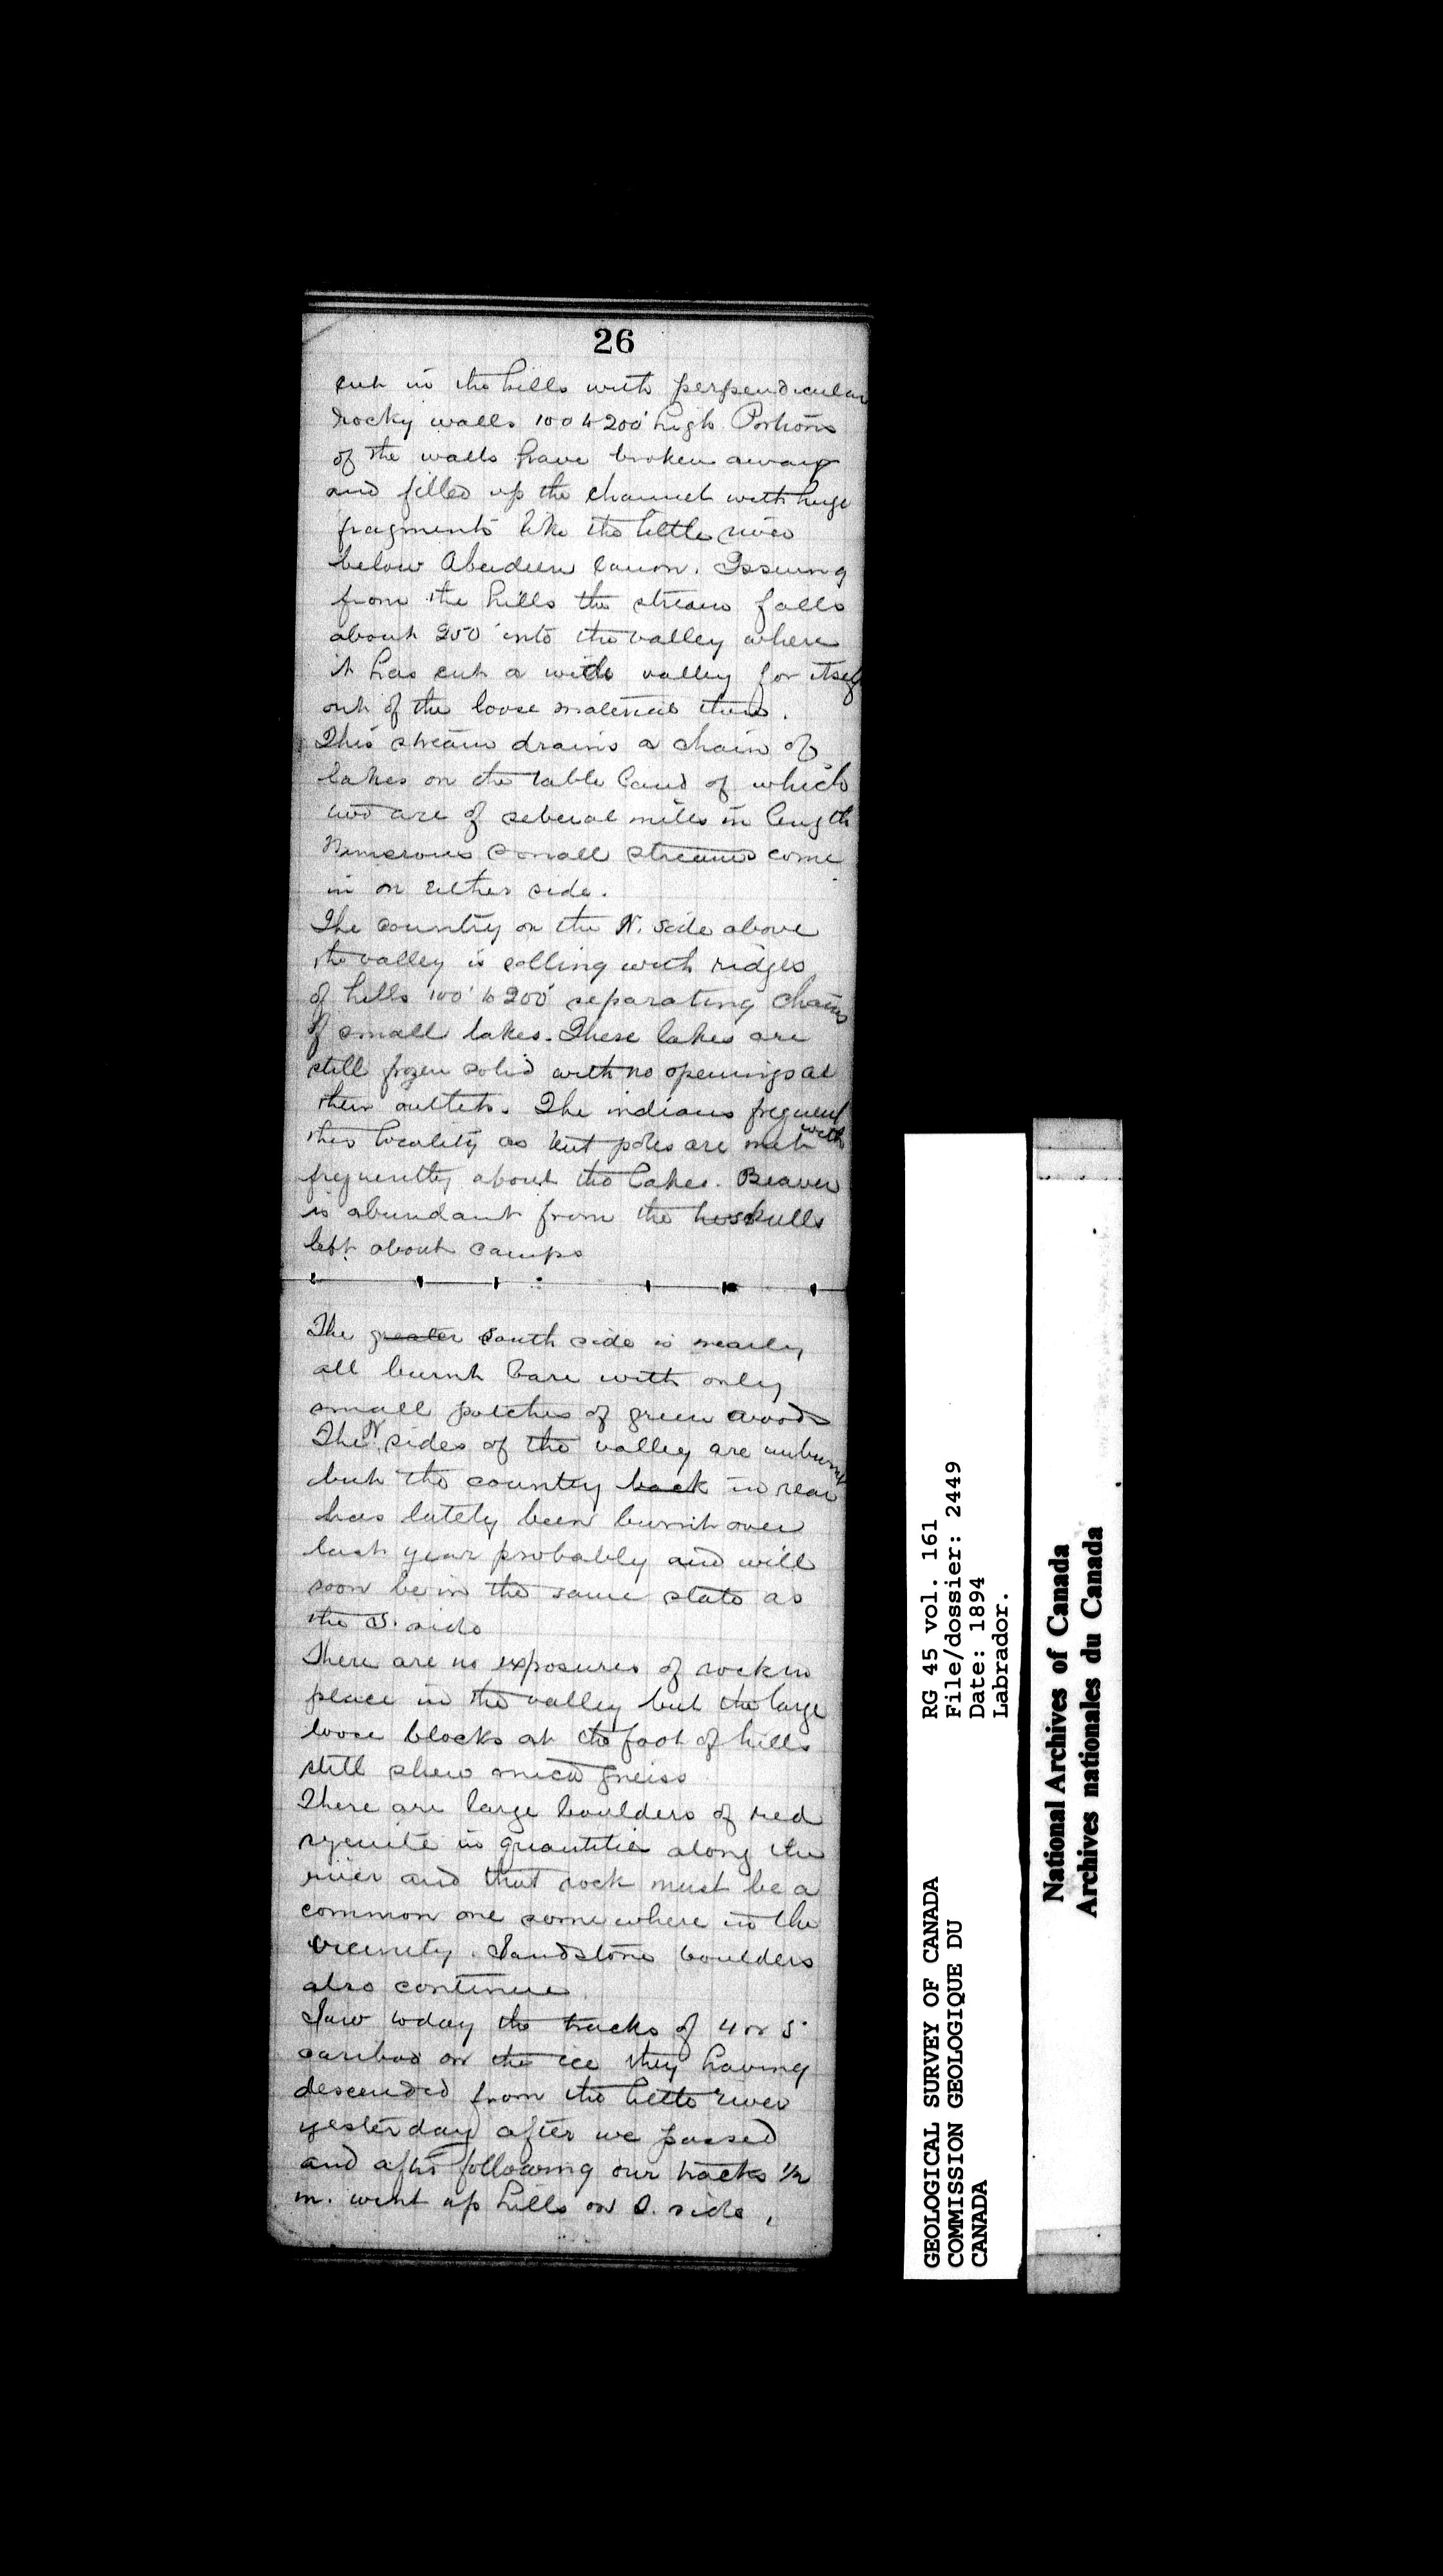 26
cut in the hills with perpendicular
rocky walls 100 to 200' high Portions
of the walls have broken away
and filled up the channel with huge
fragments like the little river
below Aberdeen Canon. Issuing
from the hills the stream falls
about 250' into the valley where
it has cut a wide valley for itself
out of the loose material there.
This stream drains a chain of
lakes on the table land of which
two are of several miles in length
Numerous small streams come
in on either side.
The country on the N. side above
the valley is rolling with ridges
of hills 100' to 200' separating chains
of small lakes. These lakes are
still frozen solid with no openings at
their outlets. The indians frequent
this locality as tent poles are met with
frequently about the lakes. Beaver
is abundant from the skulls
left about camps
The greater South side is nearly
all burnt bare with only
small patches of green woods
The N sides of the valley are unburnt
but the country back in rear
has lately been burnt over
last year probably and will
soon be in the same state as
the S. side
There are no exposures of rock in
place in the valley but the large
loose blocks at the foot of hills
still shew mica gneiss
There are large boulders of red
syenite in quantities along the
river and that rock must be a
common one somewhere in the
vicinity. Sandstone boulders
also continue.
Saw today the tracks of 4 or 5
caribou on the ice they having
descended from the little river
yesterday after we passed
and after following our tracks 1/2
m. went up hills on S. side.
GEOLOGICAL SURVEY OF CANADA
COMMISSION GEOLOGIQUE DU
CANADA
RG 45 vol. 161
File/dossier: 2449
Date: 1894
Labrador.
National Archives of Canada
Archives nationales du Canada